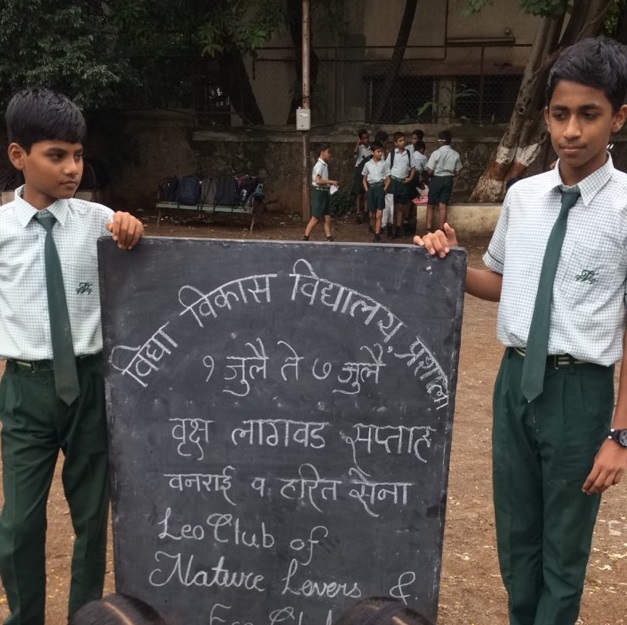 विद्या विकास विद्यालय, प्रशाला
१ जुलै ते ७ जुलै
वृक्ष लागवड सप्ताह
वनराई व हरित सेना
Leo Club of
Nature Lovers &
Eco Club